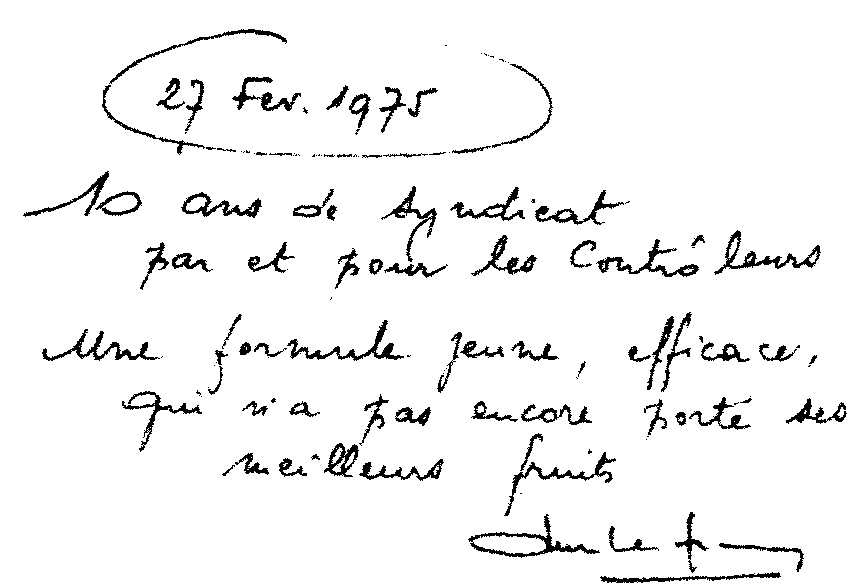 27 Fev. 1975
10 ans de syndicat
par et pour les Contrôleurs
Une formule jeune, efficace,
qui n'a pas encore porté ses
meilleurs fruits